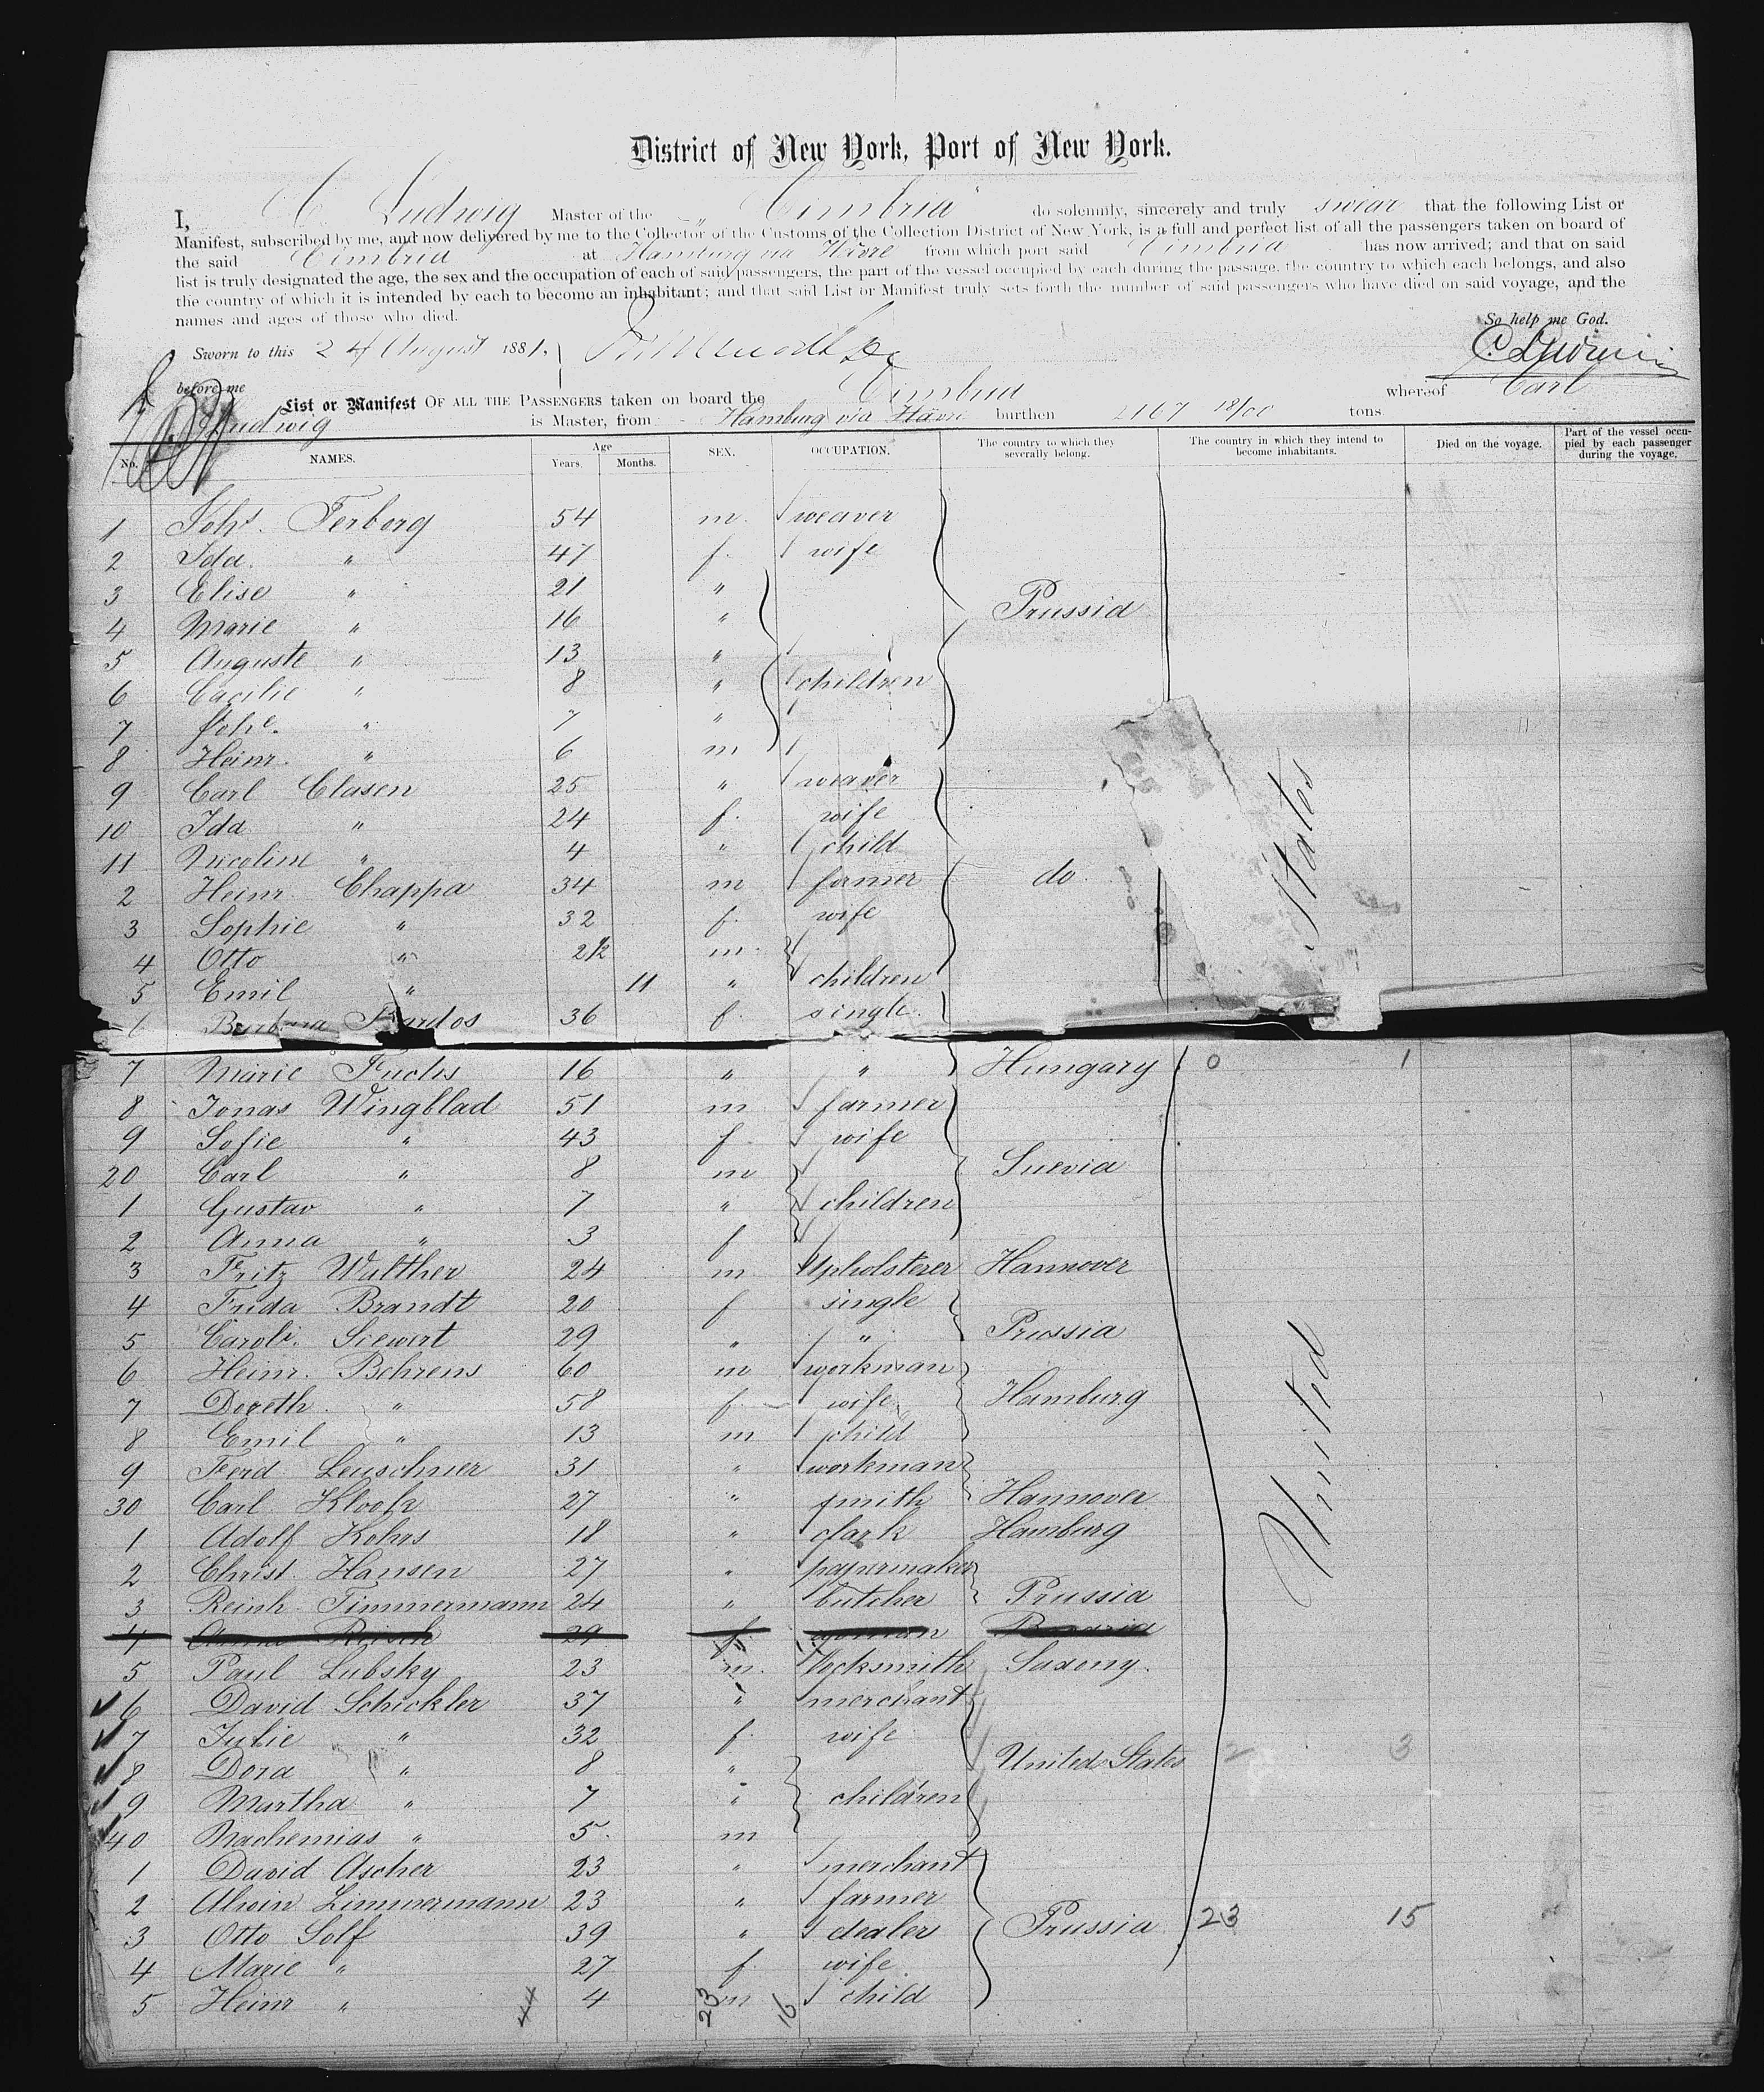 District of New York, Port of New York.
I, C. Ludwig Master of the "Cimbria" do solemnly, sincerely and truly swear that the following List or
Manifest, subscribed by me, and now delivered by me to the Collector of the Customs of the Collection District of New York, is a full and perfect list of all the passengers taken on board of
the said Cimbria at Hamburg via Hâvre from which port said Cimbria has now arrived; and that on said
list is truly designated the age, the sex and the occupation of each of said passengers, the part of the vessel occupied by each during the passage, the country to which each belongs, and also
the country of which it is intended by each to become an inhabitant; and that said List or Manifest truly sets forth the number of said passengers who have died on said voyage, and the
names and ages of those who died.
So help me God.
Sworn to this 24 August 1881.
before me
List or Manifest OF ALL THE PASSENGERS taken on board the Cimbria whereof Carl
Ludwig is Master, from Hamburg via Havre burthen 2167 18/00 tons
No. NAMES. Age Years. Months. SEX. OCCUPATION. The country to which they severally belong. The country in which they intend to become inhabitants. Died on the voyage. Part of the vessel occupied by each passenger during the voyage.
1 Johs. Terborg 54 m. weaver
2 Ida " 47 f. wife
3 Elise " 21 "
4 Marie " 16 " Prussia
5 Auguste " 13 "
6 Cacilie " 8 " children
7 Johe. " 7 "
8 Heinr. " 6 m
9 Carl Clasen 25 " weaver
10 Ida " 24 f. wife
11 Nicoline " 4 " child
2 Heinr. Chappa 34 m farmer do.
3 Sophie " 32 f. wife
4 Otto " 2½ m.
5 Emil " 11 " children
6 Barbara 36 f. single.
7 Marie Fuchs 16 " " Hungary 0 1
8 Jonas Wingblad 51 m farmer
9 Sofie " 43 f. wife
20 Carl " 8 m Suevia
1 Gustav " 7 " children
2 Anna " 3 f
3 Fritz Walther 24 m Upholsterer Hannover
4 Frida Brandt 20 f single
5 Caroli. Siewert 29 " " Prussia
6 Heinr. Behrens 60 m workman
7 Doreth. " 58 f. wife Hamburg
8 Emil " 13 m child
9 Ferd. Leuschner 31 " workman
30 Carl Klook 27 " smith Hannover
1 Adolf Kohrs 18 " clark Hamburg
2 Christ. Hansen 27 " papermaker
3 Reinh. Timmermann 24 " butcher Prussia
4 Anna 29 f. woman Bavaria
5 Paul Lubsky 23 m. locksmith Saxony.
6 David Schickler 37 " merchant
7 Julie " 32 f. wife
8 Dora " 8 " United States 2 3
9 Martha " 7 " children
40 Nachemias " 5. m
1 David Ascher 23 " merchant
2 Alwin Zimmermann 23 " farmer
3 Otto Solf 39 " dealer Prussia 23 15
4 Marie " 27 f wife
5 Heinr " 4 m child
United States
44 23 16